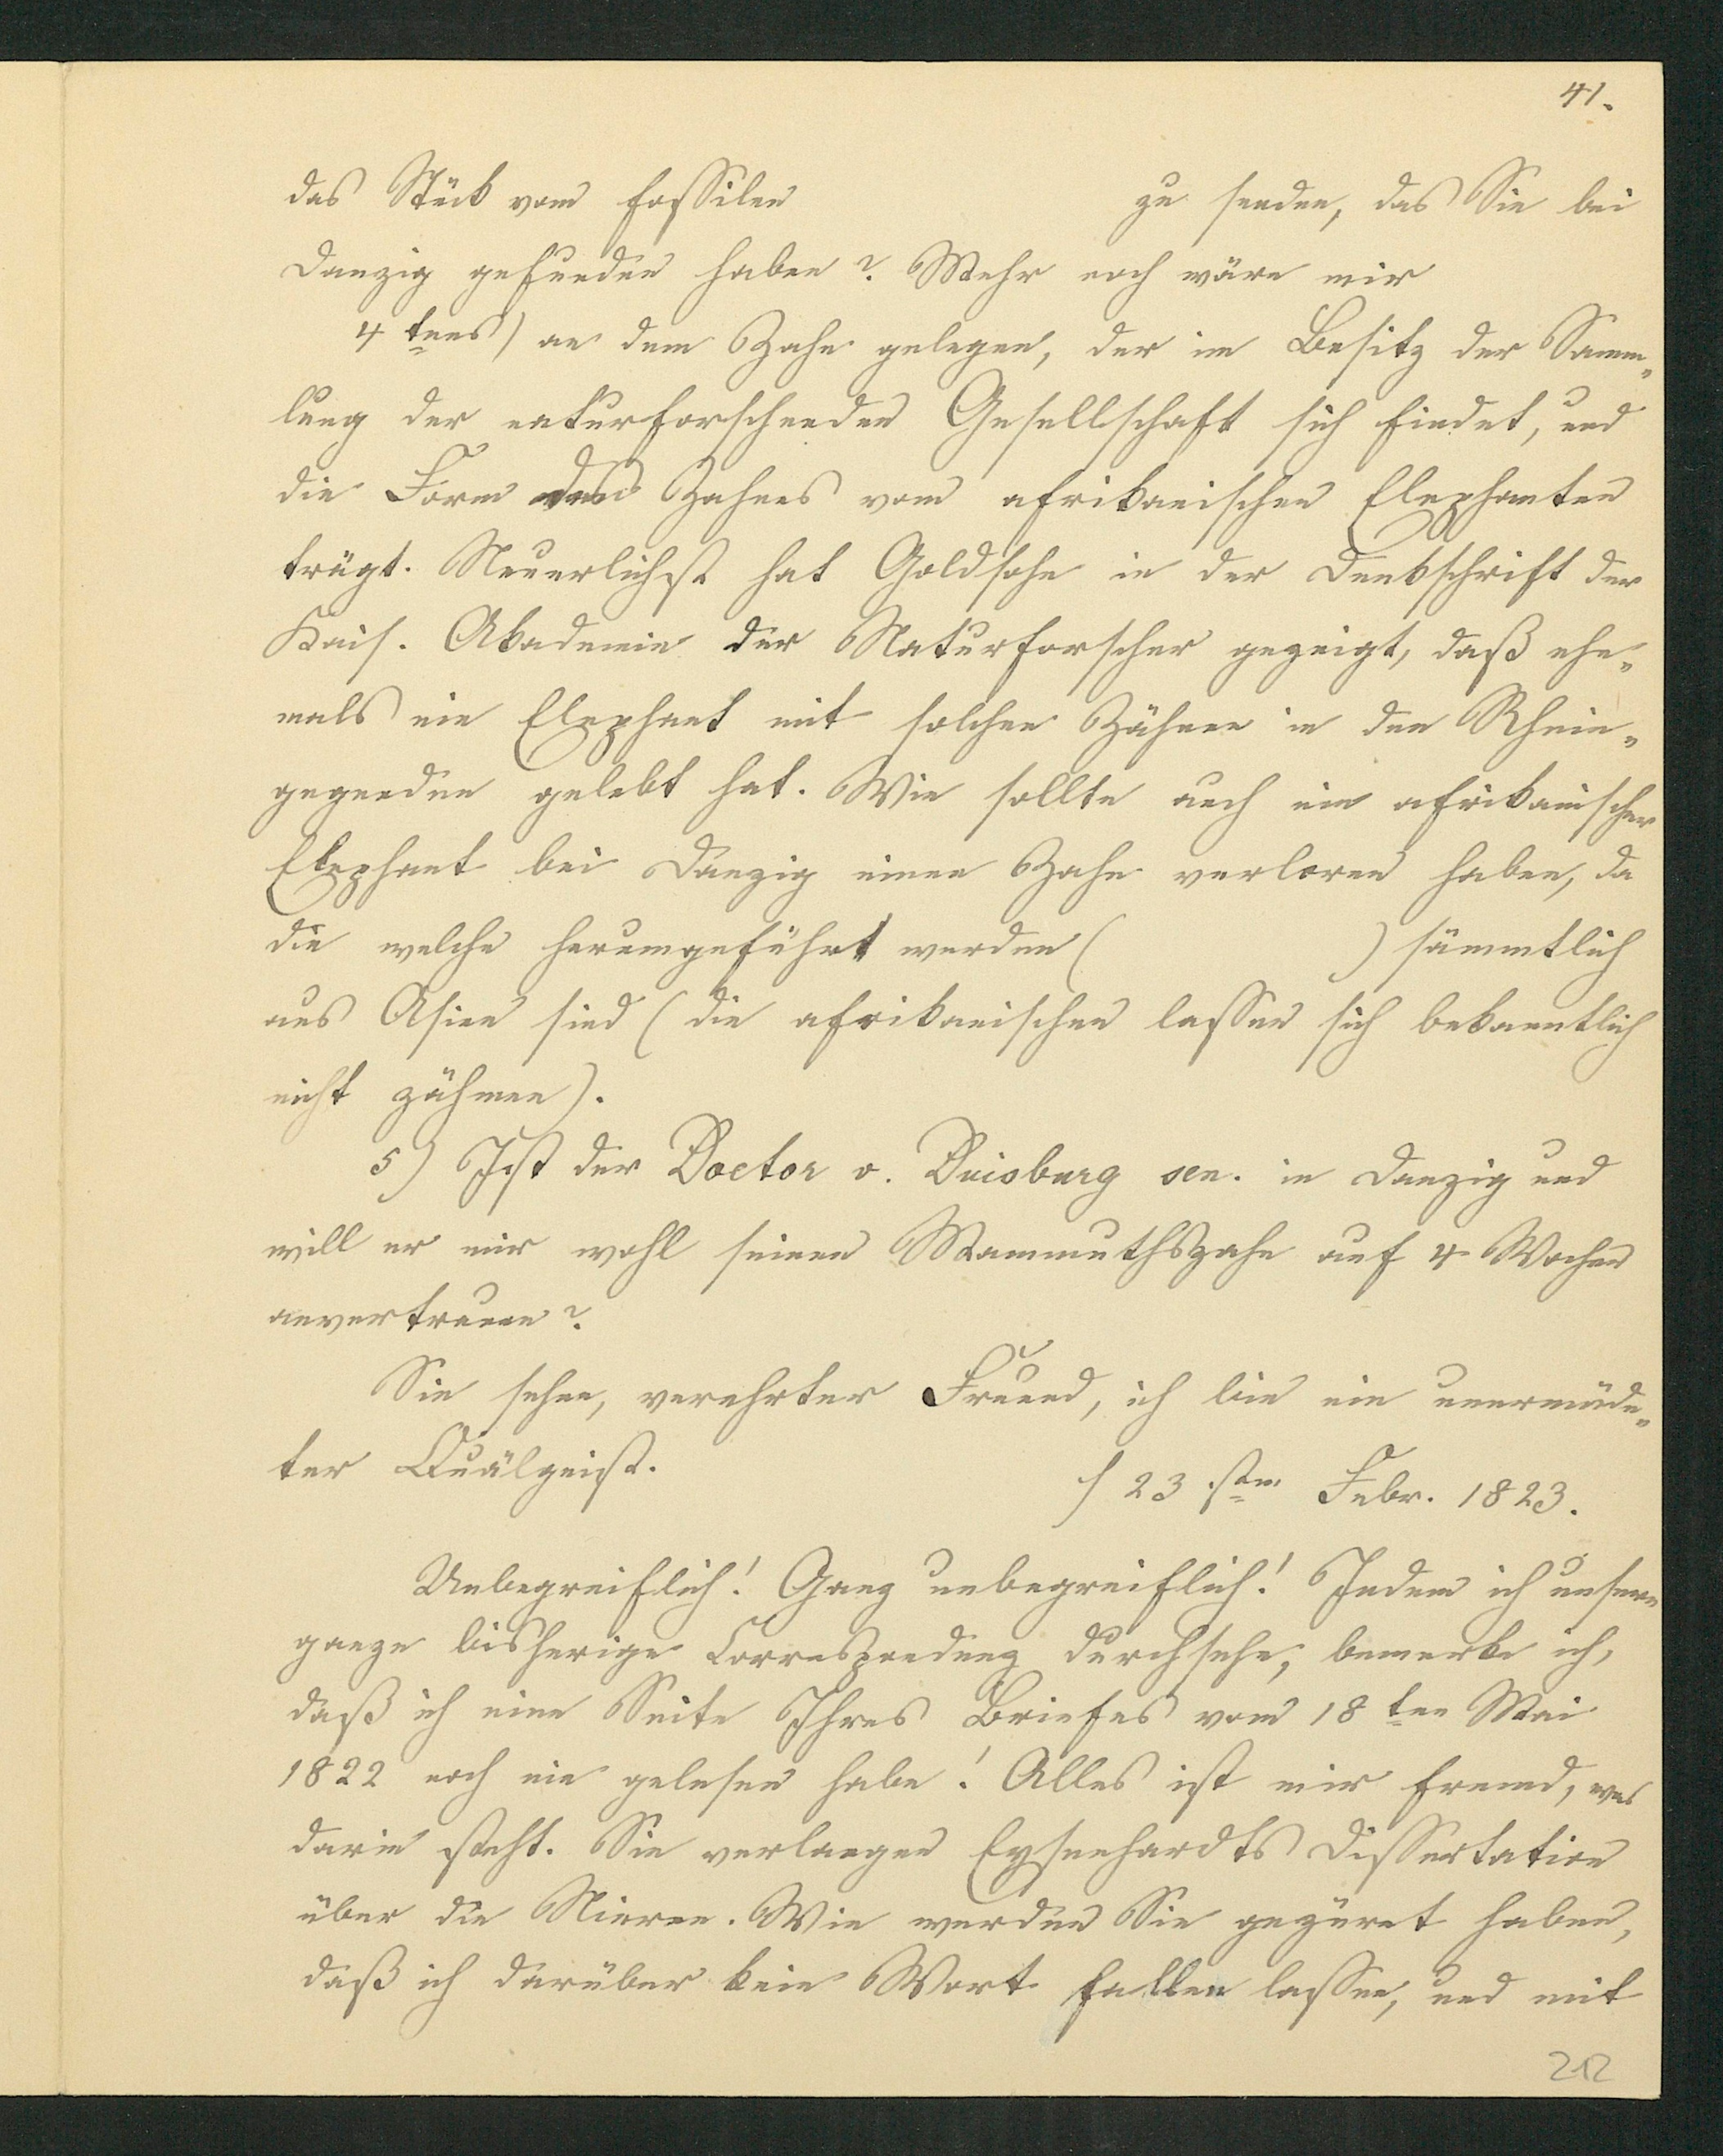 41.
das Stück vom fossilen zu senden, das Sie bei
Danzig gefunden haben? Mehr noch wäre mir
4 tens) an dem Zahn gelegen, der im Besitz der Samm„
lung der naturforschenden Gesellschaft sich findet, und
die Form des Zahnes vom afrikanischen Elephanten
trägt. Neuerlichst hat Goldfuß in der Denkschrift der
Kais. Akademie der Naturforscher gezeigt, daß ehe„
mals ein Elephant mit solchen Zähnen in den Rhein„
gegenden gelebt hat. Wie sollte auch ein afrikanischer
Elephant bei Danzig einen Zahn verloren haben, da
die welche herumgeführt werden ( ) sämmtlich
aus Asien sind (die afrikanischen lassen sich bekanntlich
nicht zähmen).
5) Ist der Doctor v. Duisburg sen. in Danzig und
will er mir wohl seinen Mammuthszahn auf 4 Wochen
anvertrauen?
Sie sehen, verehrter Freund, ich bin ein unermüde„
ter Quälgeist.
/ 23 sten Febr. 1823.
Unbegreiflich! Ganz unbegreiflich! Indem ich unsere
ganze bisherige Correspondenz durchsehe, bemerke ich,
daß ich eine Seite Ihres Briefes vom 18 ten Mai
1822 noch nie gelesen habe! Alles ist mir fremd, was
darin steht. Sie verlangen Eysenhardts Dissertation
über die Nieren. Wie werden Sie gezürnt haben,
daß ich darüber kein Wort fallen lassen, und mit
212